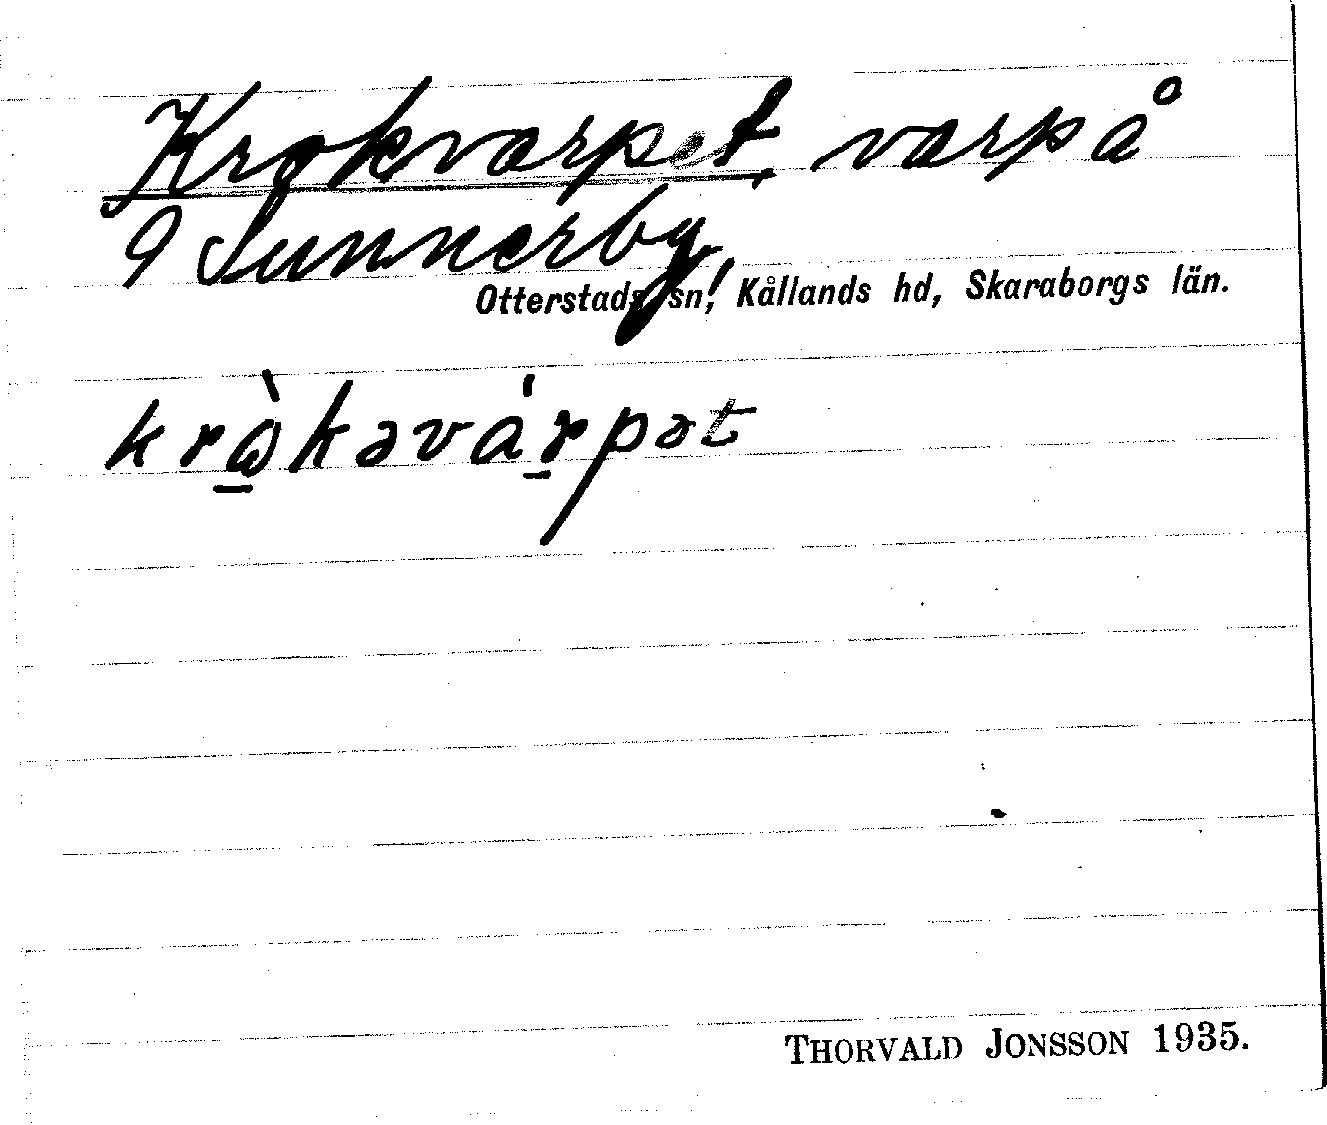 Krokvarpet, varp å
9 Sunnerby,
Otterstads sn, Kållands hd, Skaraborgs län.
krὼ̱kəvár̠pət
THORVALD JONSSON 1935.